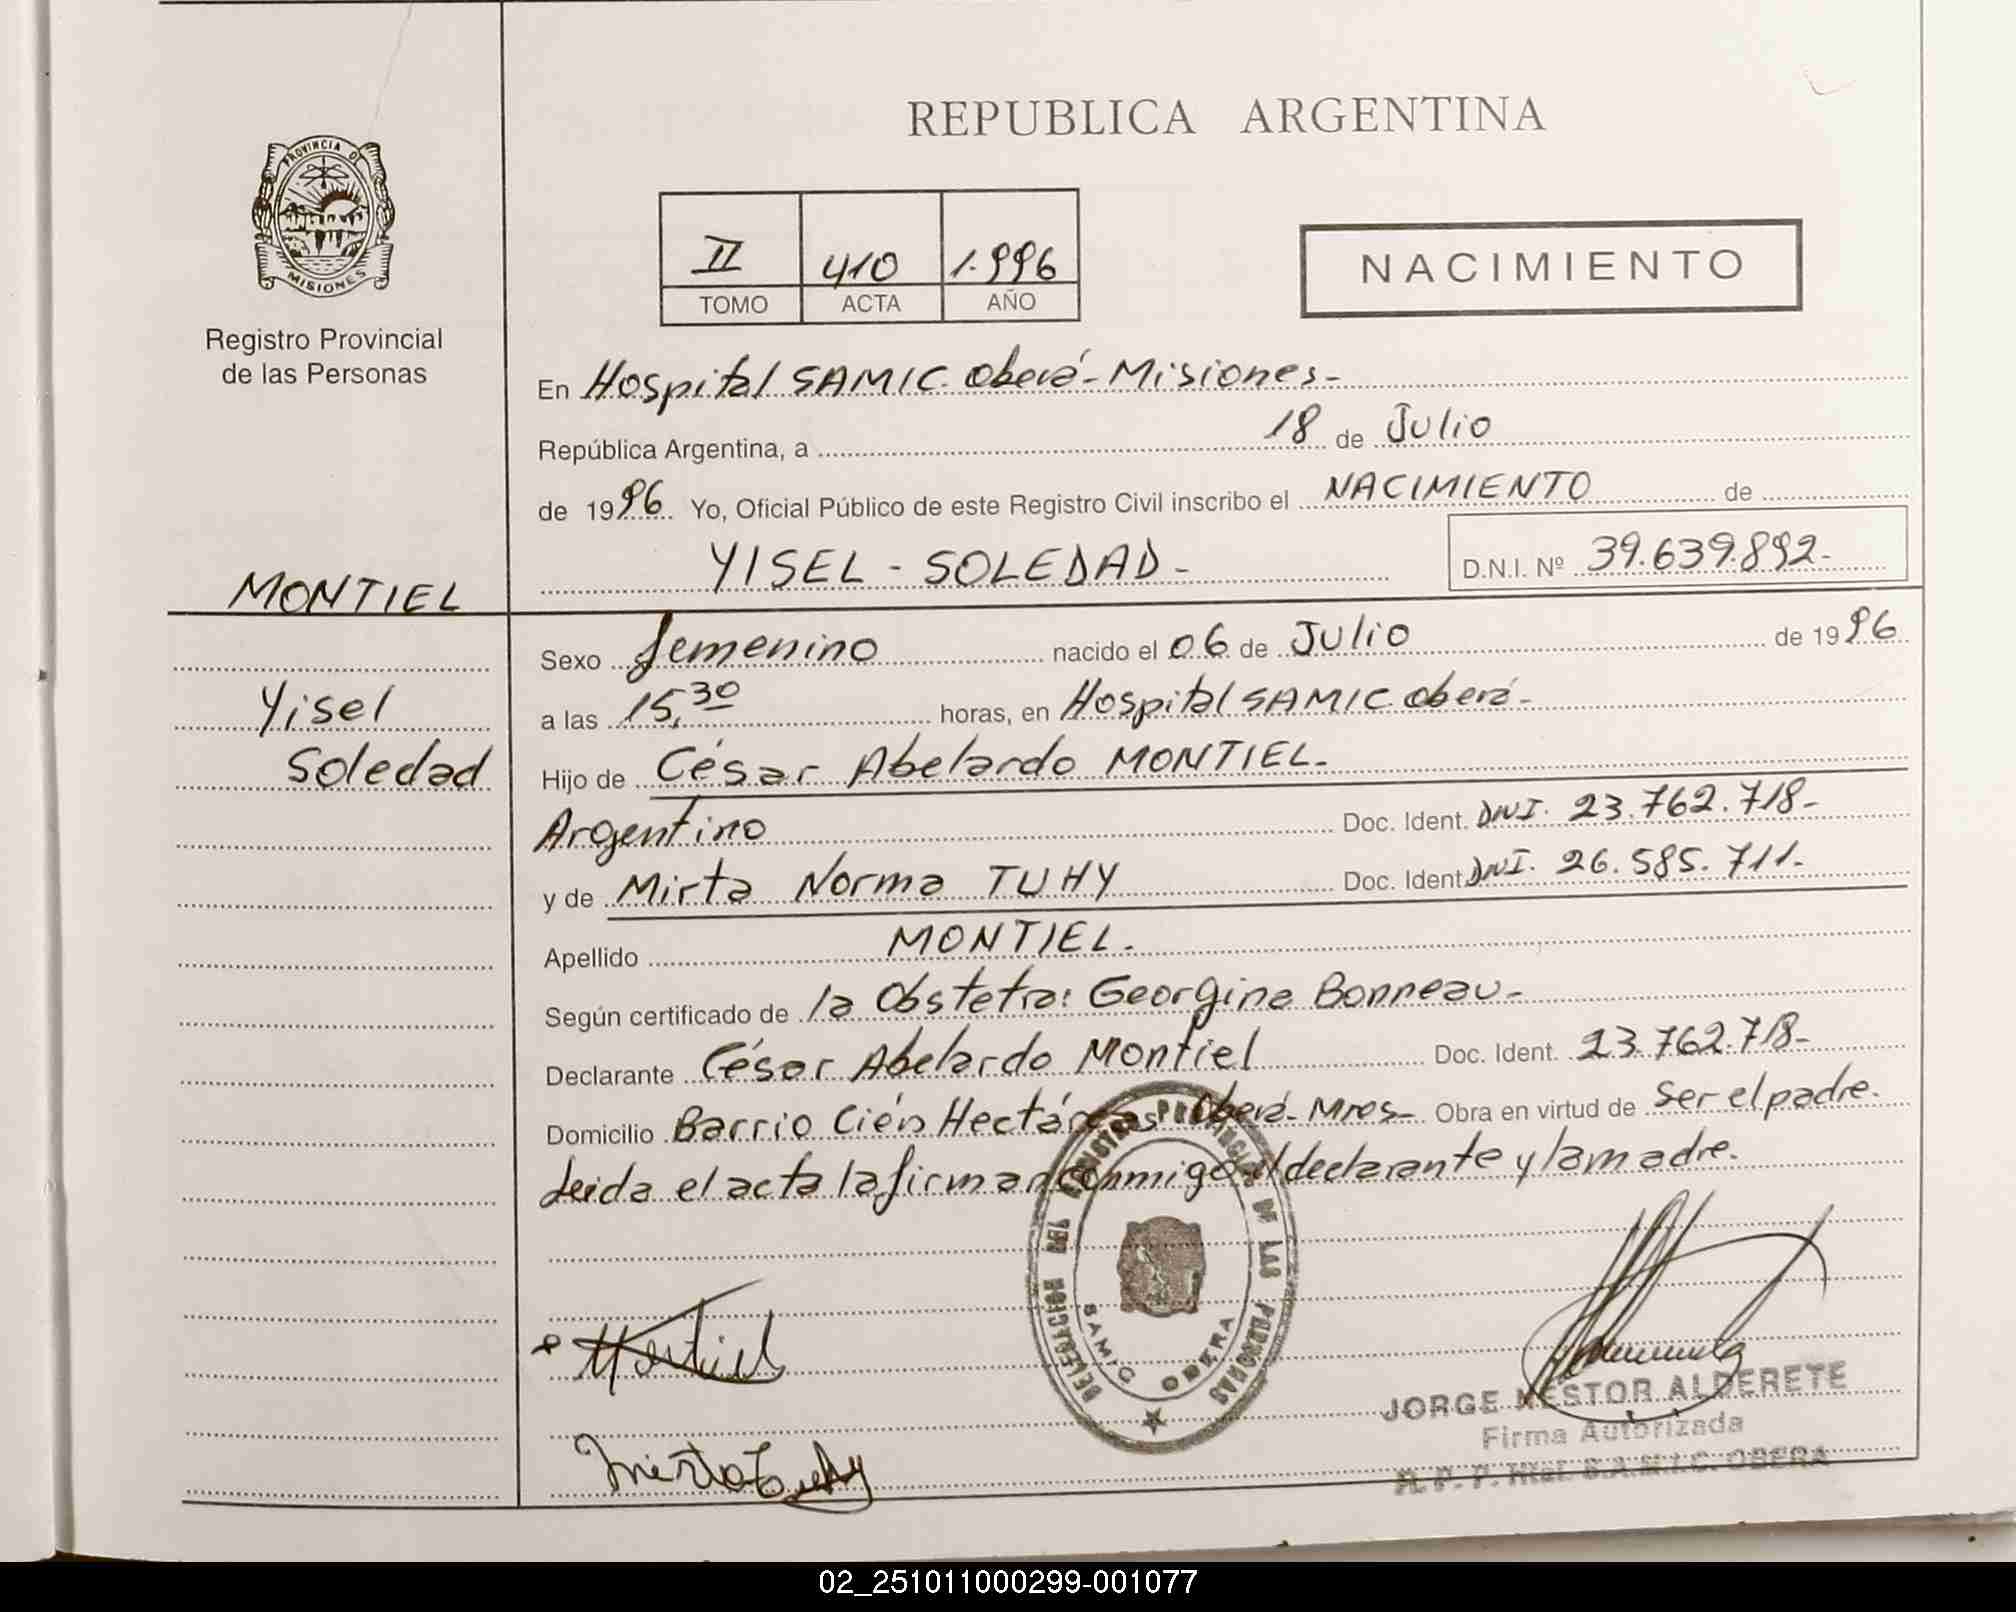 REPUBLICA ARGENTINA
PROVINCIA DE
MISIONES
Registro Provincial
de las Personas
II 410 1.996
TOMO ACTA AÑO
NACIMIENTO
En Hospital SAMIC. Oberá - Misiones -
República Argentina, a 18 de Julio
de 1996 Yo, Oficial Público de este Registro Civil inscribo el NACIMIENTO de
YISEL - SOLEDAD -
D.N.I. Nº 39.639.892-
MONTIEL
Yisel
Soledad
Sexo femenino nacido el 06 de Julio de 1996
a las 15,30 horas, en Hospital SAMIC. Oberá -
Hijo de César Abelardo MONTIEL -
Argentino Doc. Ident. DNI. 23.762.718-
y de Mirta Norma TUHY Doc. Ident. DNI. 26.585.711-
Apellido MONTIEL.
Según certificado de la Obstetra: Georgina Bonneau -
Declarante César Abelardo Montiel Doc. Ident. 23.762.718-
Domicilio Barrio Cién Hectáreas Oberá - Mnes - Obra en virtud de ser el padre.
Leida el acta la firman conmigo el declarante y la madre.
DELEGACION DEL REGISTRO PROVINCIAL DE LAS PERSONAS
SAMIC OBERA
Montiel
Mirta Tuhy
JORGE NESTOR ALDERETE
Firma Autorizada
R. P. P. Htal. S.A.M.I.C. OBERA
02_251011000299-001077